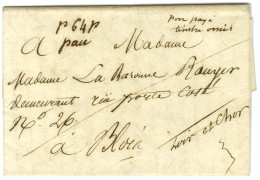 P64P
pau
non payé
timbre omis
A Madame
Madame La Baronne Rouyer
demeurant rue porte Coté
N° 26
à Blois
Loir et Cher